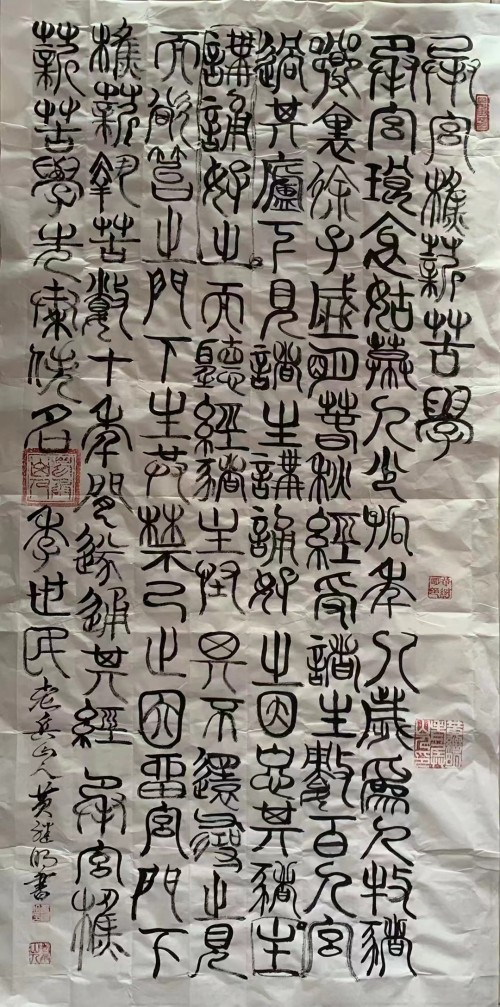 承宮樵薪苦學
承宮琅邪姑幕人少孤年八歲為人牧豬
鄉裏徐子盛明春秋經受諸生數百人宮
過其廬下見諸生講誦好之因忘其豬生
講誦好之而聽經豬主怪其不還尋之見
而欲笞之門下生共禁已止因留宮門下
樵薪執苦數十年間遂通其經 承宮樵
薪苦學先秦佚名 李世民 老兵山人黄继明書